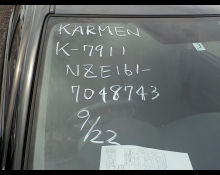 KARMEN
K-7911
NZE161-
7048743
9/22